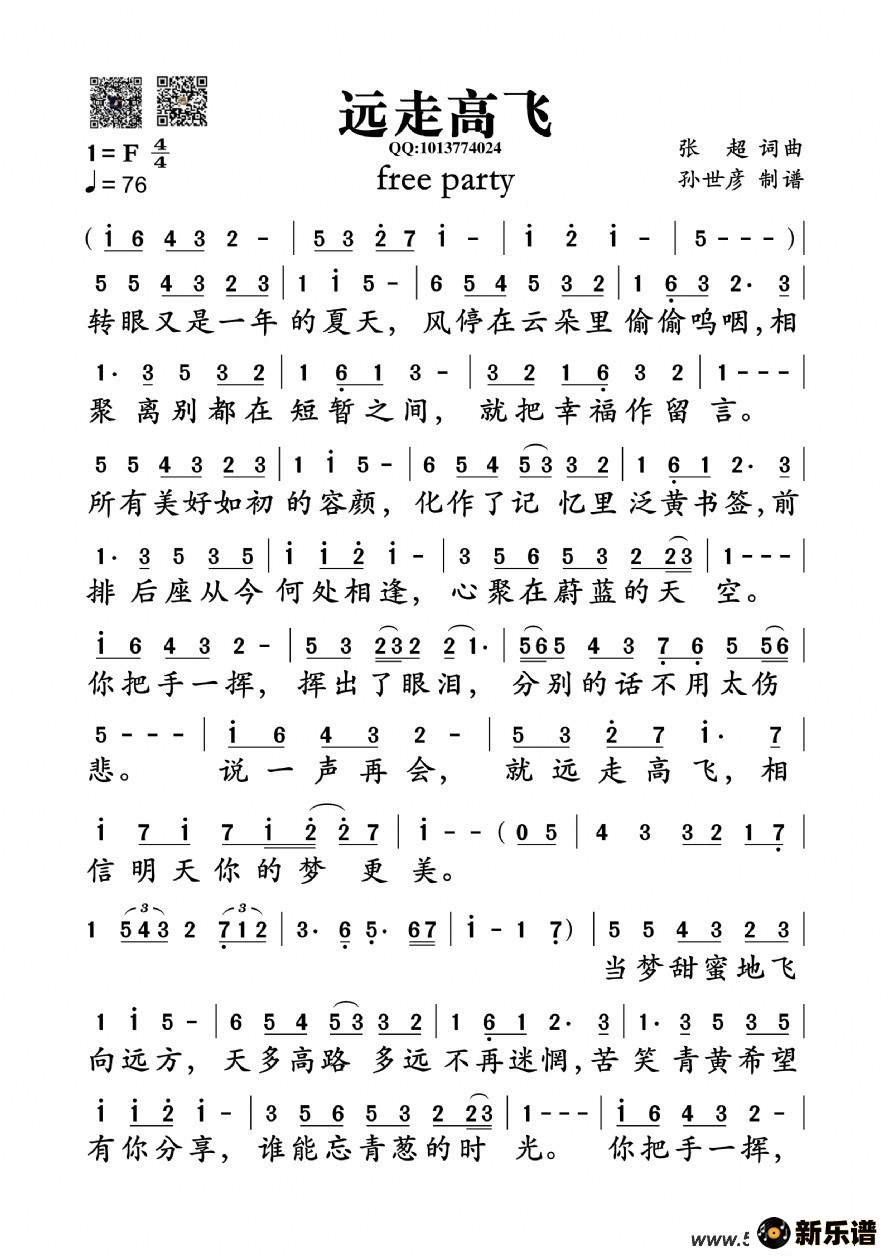 远走高飞
QQ:1013774024
free party
1=F 4/4
♩=76
张 超 词曲
孙世彦 制谱
( i 6 4 3 2 - | 5 3 2̇ 7 i - | i 2̇ i - | 5 - - - ) |
5 5 4 3 2 3 | 1 i 5 - | 6 5 4 5 3 2 | 1 6̣ 3 2· 3 |
转眼又是一年 的夏天， 风停在云朵里 偷偷呜咽，相
1· 3 5 3 2 | 1 6̣ 1 3 - | 3 2 1 6̣ 3 2 | 1 - - - |
聚 离别都在 短暂之间， 就把幸福作留言。
5 5 4 3 2 3 | 1 i 5 - | 6 5 4 5 3 3 2 | 1 6̣ 1 2· 3 |
所有美好如初 的容颜， 化作了记 忆里 泛黄书签，前
1· 3 5 3 5 | i i 2̇ i - | 3 5 6 5 3 2 2 3 | 1 - - - |
排 后座从今 何处相逢， 心聚在蔚蓝的天 空。
i 6 4 3 2 - | 5 3 2 3 2 2 1· | 5 6 5 4 3 7̣ 6̣ 5 5 6 |
你把手一挥， 挥出了眼泪， 分别的话不用太伤
5 - - - | i 6 4 3 2 - | 5 3 2̇ 7 i· 7 |
悲。 说一声再会， 就远走高飞，相
i 7 i 7 i 2̇ 2̇ 7 | i - - ( 0 5 | 4 3 3 2 1 7̣ |
信明天你的梦 更美。
1 5 4 3 2 7̣ 1 2 | 3· 6̣ 5̣· 6 7 | i - 1 7̣ ) | 5 5 4 3 2 3 |
当梦甜蜜地飞
1 i 5 - | 6 5 4 5 3 3 2 | 1 6̣ 1 2· 3 | 1· 3 5 3 5 |
向远方， 天多高路 多远 不再迷惘，苦 笑青黄希望
i i 2̇ i - | 3 5 6 5 3 2 2 3 | 1 - - - | i 6 4 3 2 - |
有你分享， 谁能忘青葱的时 光。 你把手一挥，
www.5
新乐谱